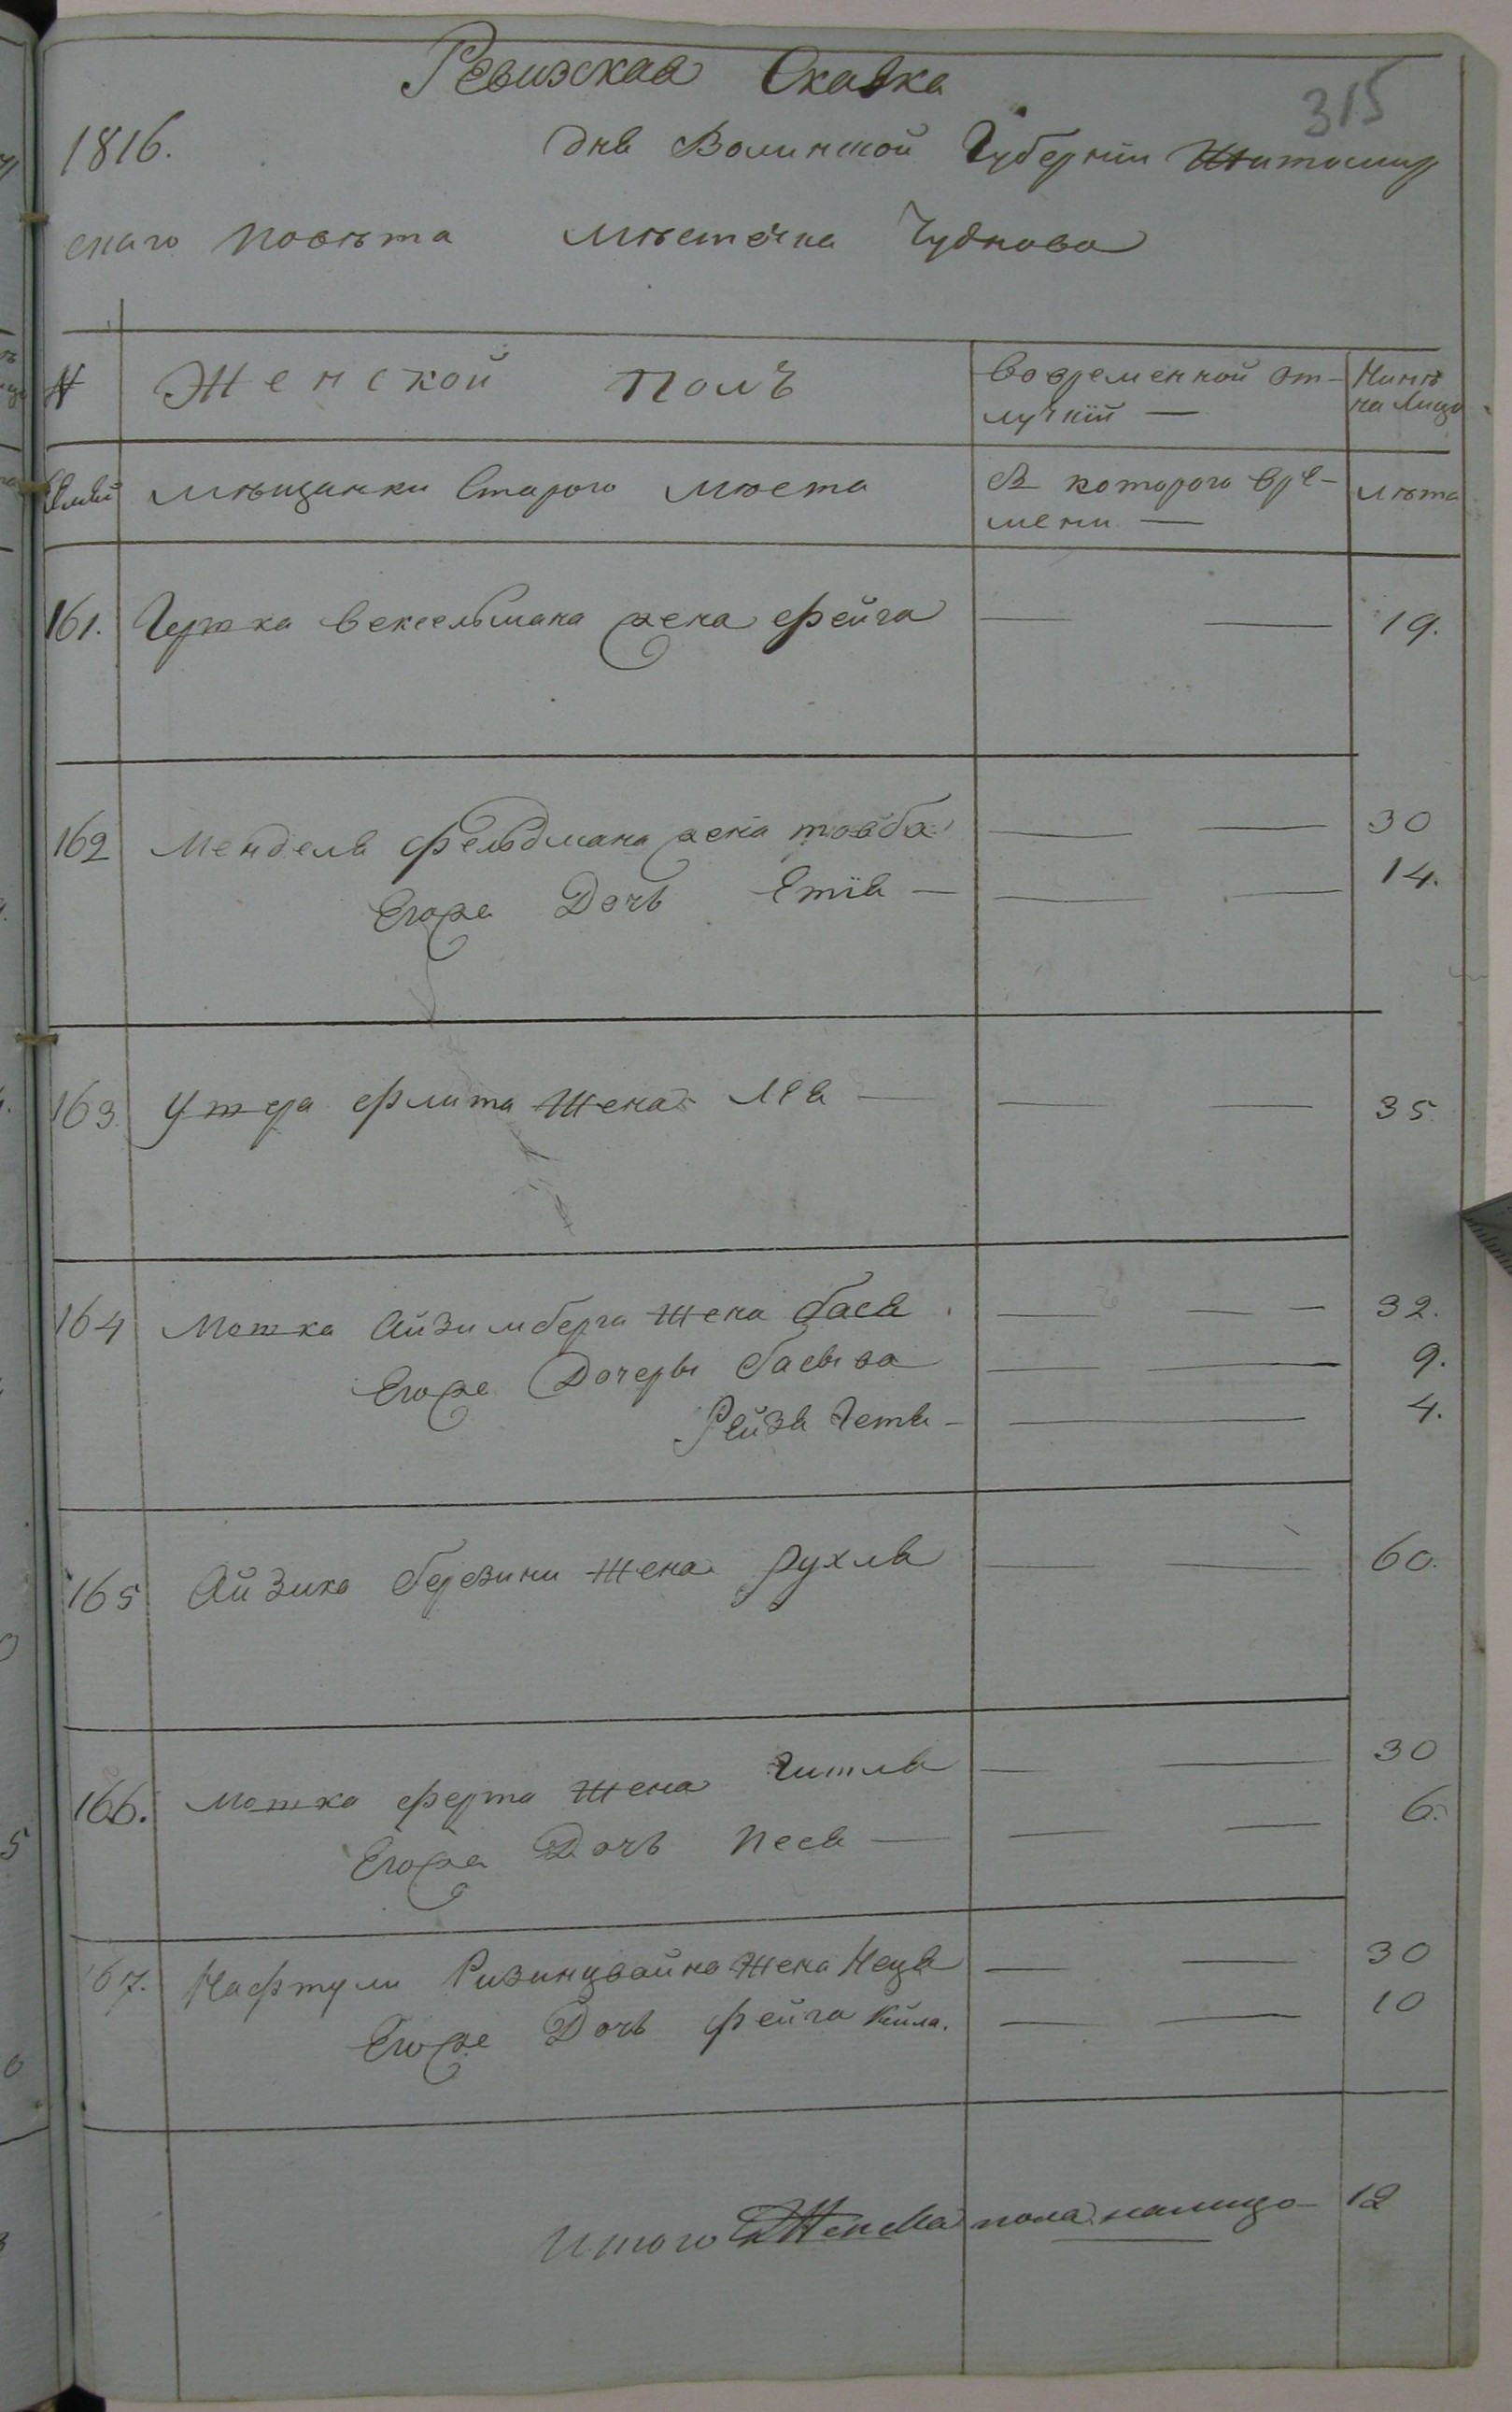 315
Ревизская Сказка
1816. дня Волинской Губерніи Житомир
скаго Повѣта Мѣстечка Чуднова
№ Женской Полъ вовременной от- Нинѣ
лучкїй — на лицо
мѣщанки Старого мѣста С которого вре- лѣта
мени —
161. Гершка вексельмана жена фейга — — 19.
162 Мендела фельдмана жена товба — — 30
Егоже Дочь Етїя — — — 14.
163. флита Жена Лея — — — 35
164 Мошка Айзимберга Жена бася — — — 32.
Егоже Дочеры — — 9.
Рейзя — — 4.
165 Айзика березини Жена рухля — — 60.
166. Мошка ферта Жена Гитля — — 30
Егоже Дочь Песя — — — 6.
167. Нафтули Ризинцвайна Жена Неця — — 30
Егоже Дочь фейга — — 10
Итого Женска пола налицо — 12